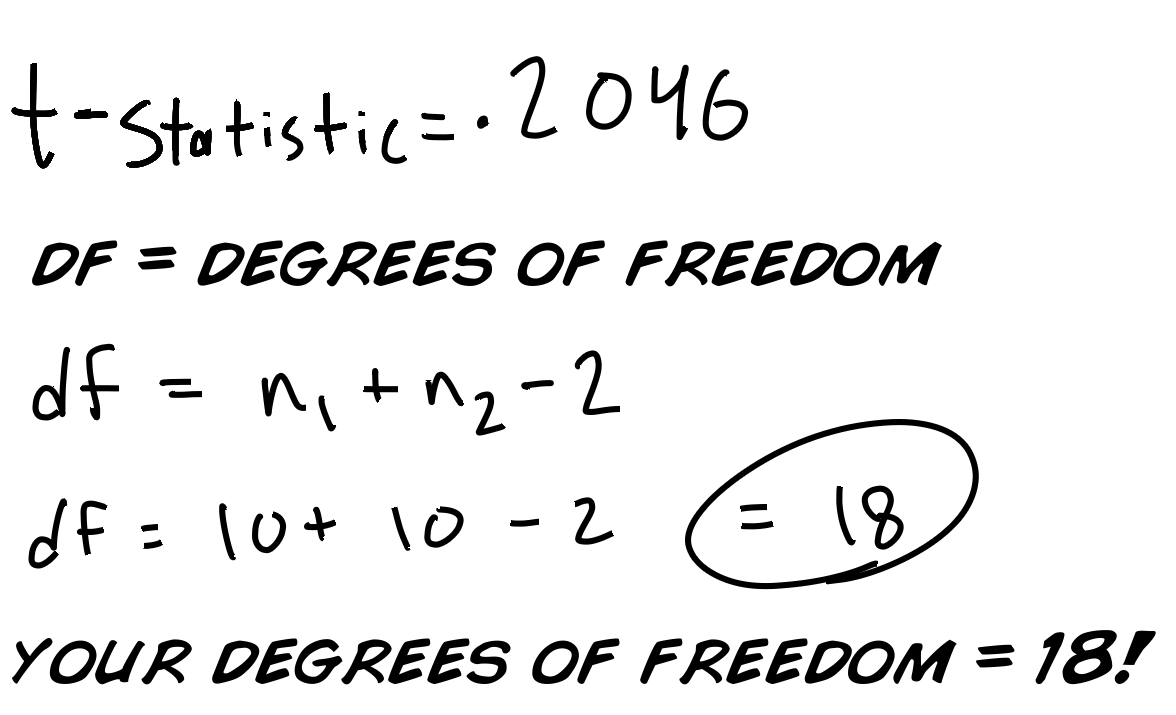 t-statistic = .2046
DF = DEGREES OF FREEDOM
df = n₁ + n₂ - 2
df = 10 + 10 - 2 = 18
YOUR DEGREES OF FREEDOM = 18!